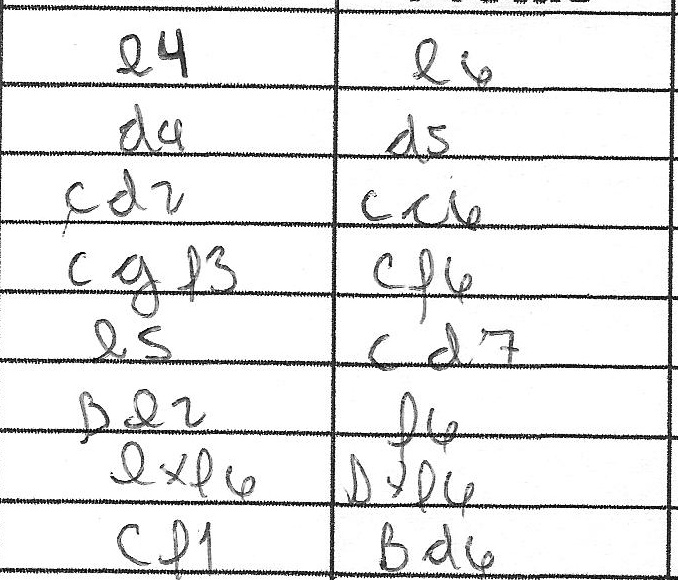 e4 e6
d4 d5
Cd2 Cc6
Cgf3 Cf6
e5 Cd7
Be2 f6
exf6 Dxf6
Cf1 Bd6